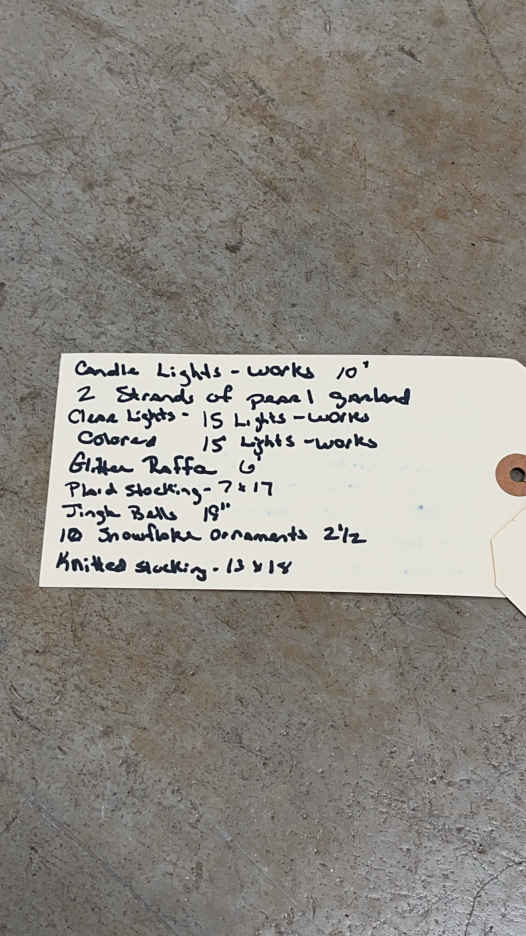 Candle Lights - works 10'
2 Strands of pearl garland
Clear Lights - 15 Lights - works
Colored 15 Lights - works
Glitter Raffa 6'
Plaid Stocking - 7 x 17
Jingle Bells 18"
10 Snowflake Ornaments 2 1/2
Knitted stocking - 13 x 18